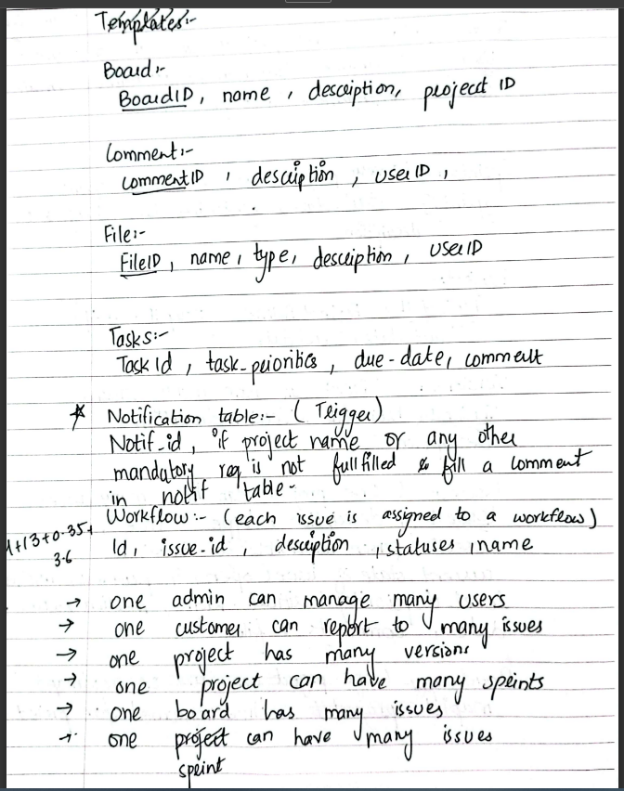 Templates:-
Board:-
BoardID, name, description, project ID
Comment:-
CommentID, description, userID,
File:-
FileID, name, type, description, userID
Tasks:-
Task Id, task-priorities, due-date, comment
* Notification table:- (Trigger)
Notif-id, if project name or any other
mandatory req is not fullfilled & fill a comment
in notif table-
Workflow:- (each issue is assigned to a workflow)
1+13+0.35+
Id, issue-id, description, statuses, name
3.6
→ one admin can manage many users
→ one customer can report to many issues
→ one project has many versions
→ one project can have many sprints
→ one board has many issues
→ one project can have many issues
sprint